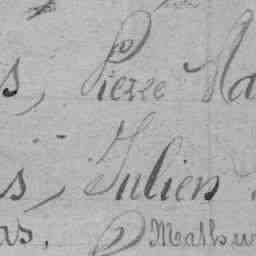 s, Pierre Ma
s, Julien
as. Mathu